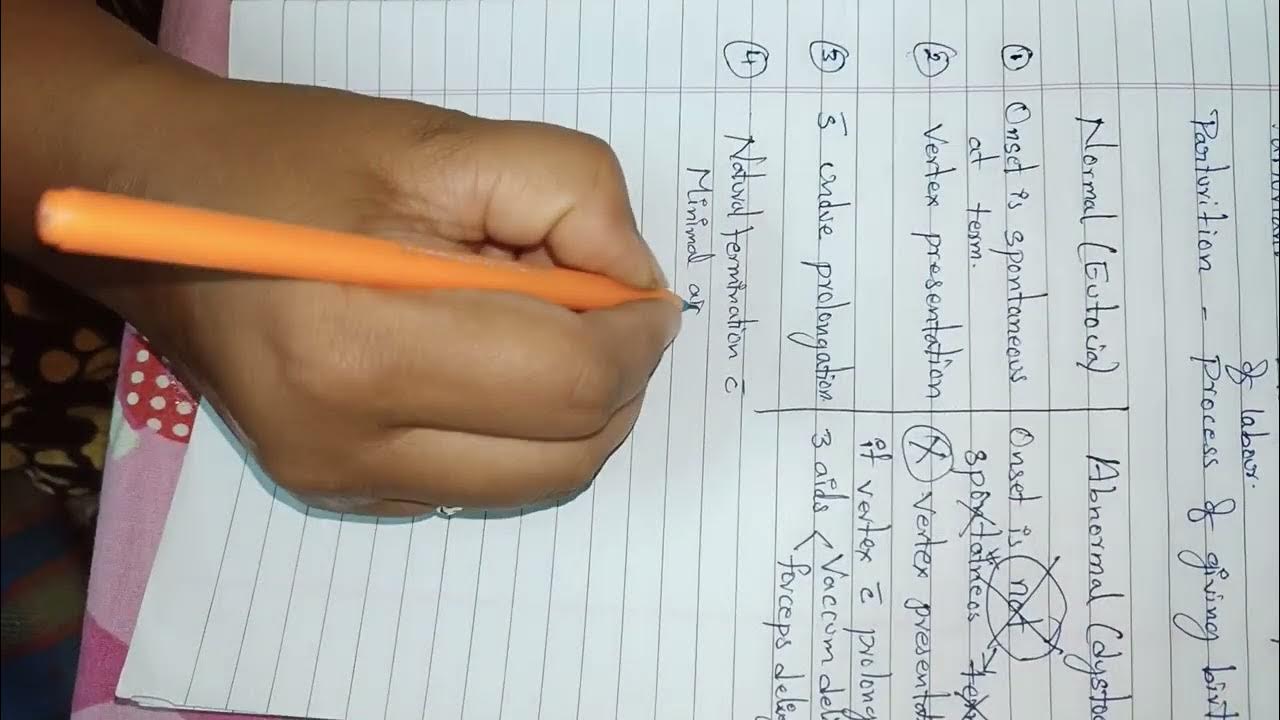 of labour.
Parturition - Process of giving birt
Normal (Eutocia) Abnormal (dysto
① Onset is spontaneous Onset is not
at term. spontaineos
② Vertex presentation Ⓧ Vertex presentat
if vertex c̄ prolong
③ s̄ undue prolongation 3 aids < Vaccum deli
forceps deliv
④ Natural termination c̄
Minimal ai